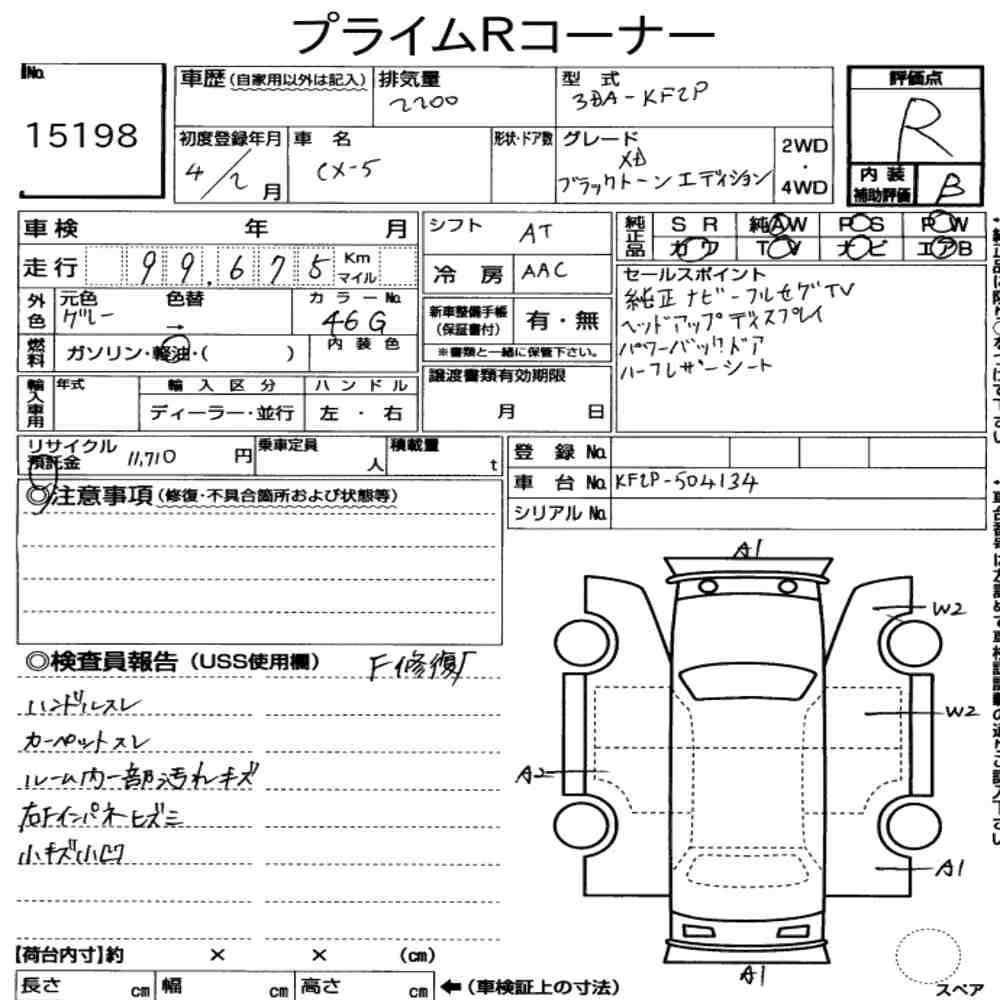 プライムRコーナー
No.
15198
車歴(自家用以外は記入)
排気量
2200
型式
3DA-KF2P
初度登録年月
4/2月
車名
CX-5
形状・ドア数
グレード
XD
ブラックトーンエディション
2WD
・
4WD
評価点
R
内装
補助評価
B
車検 年 月
走行 99,675 Km
マイル
外色
元色
グレー
色替
→
カラーNo.
46G
燃料
ガソリン・軽油・( )
内装色
輸入車用
年式
輸入区分
ディーラー・並行
ハンドル
左・右
シフト
AT
冷房
AAC
新車整備手帳
(保証書付)
有・無
※書類と一緒に保管下さい。
譲渡書類有効期限
月 日
純正品
SR
純AW
PS
PW
カワ
TV
ナビ
エアB
セールスポイント
純正ナビーフルセグTV
ヘッドアップディスプレイ
パワーバックドア
ハーフレザーシート
リサイクル
預託金 11,710 円
乗車定員
人
積載量
t
登録No.
車台No. KF2P-504134
シリアルNo.
◎注意事項(修復・不具合箇所および状態等)
◎検査員報告(USS使用欄)
F修復
ハンドルスレ
カーペットスレ
ルーム内一部汚れキズ
右Fインパネヒズミ
小キズ小凹
A1
W2
W2
A2
A1
A1
スペア
【荷台内寸】約 × × (cm)
長さ cm
幅 cm
高さ cm
←(車検証上の寸法)